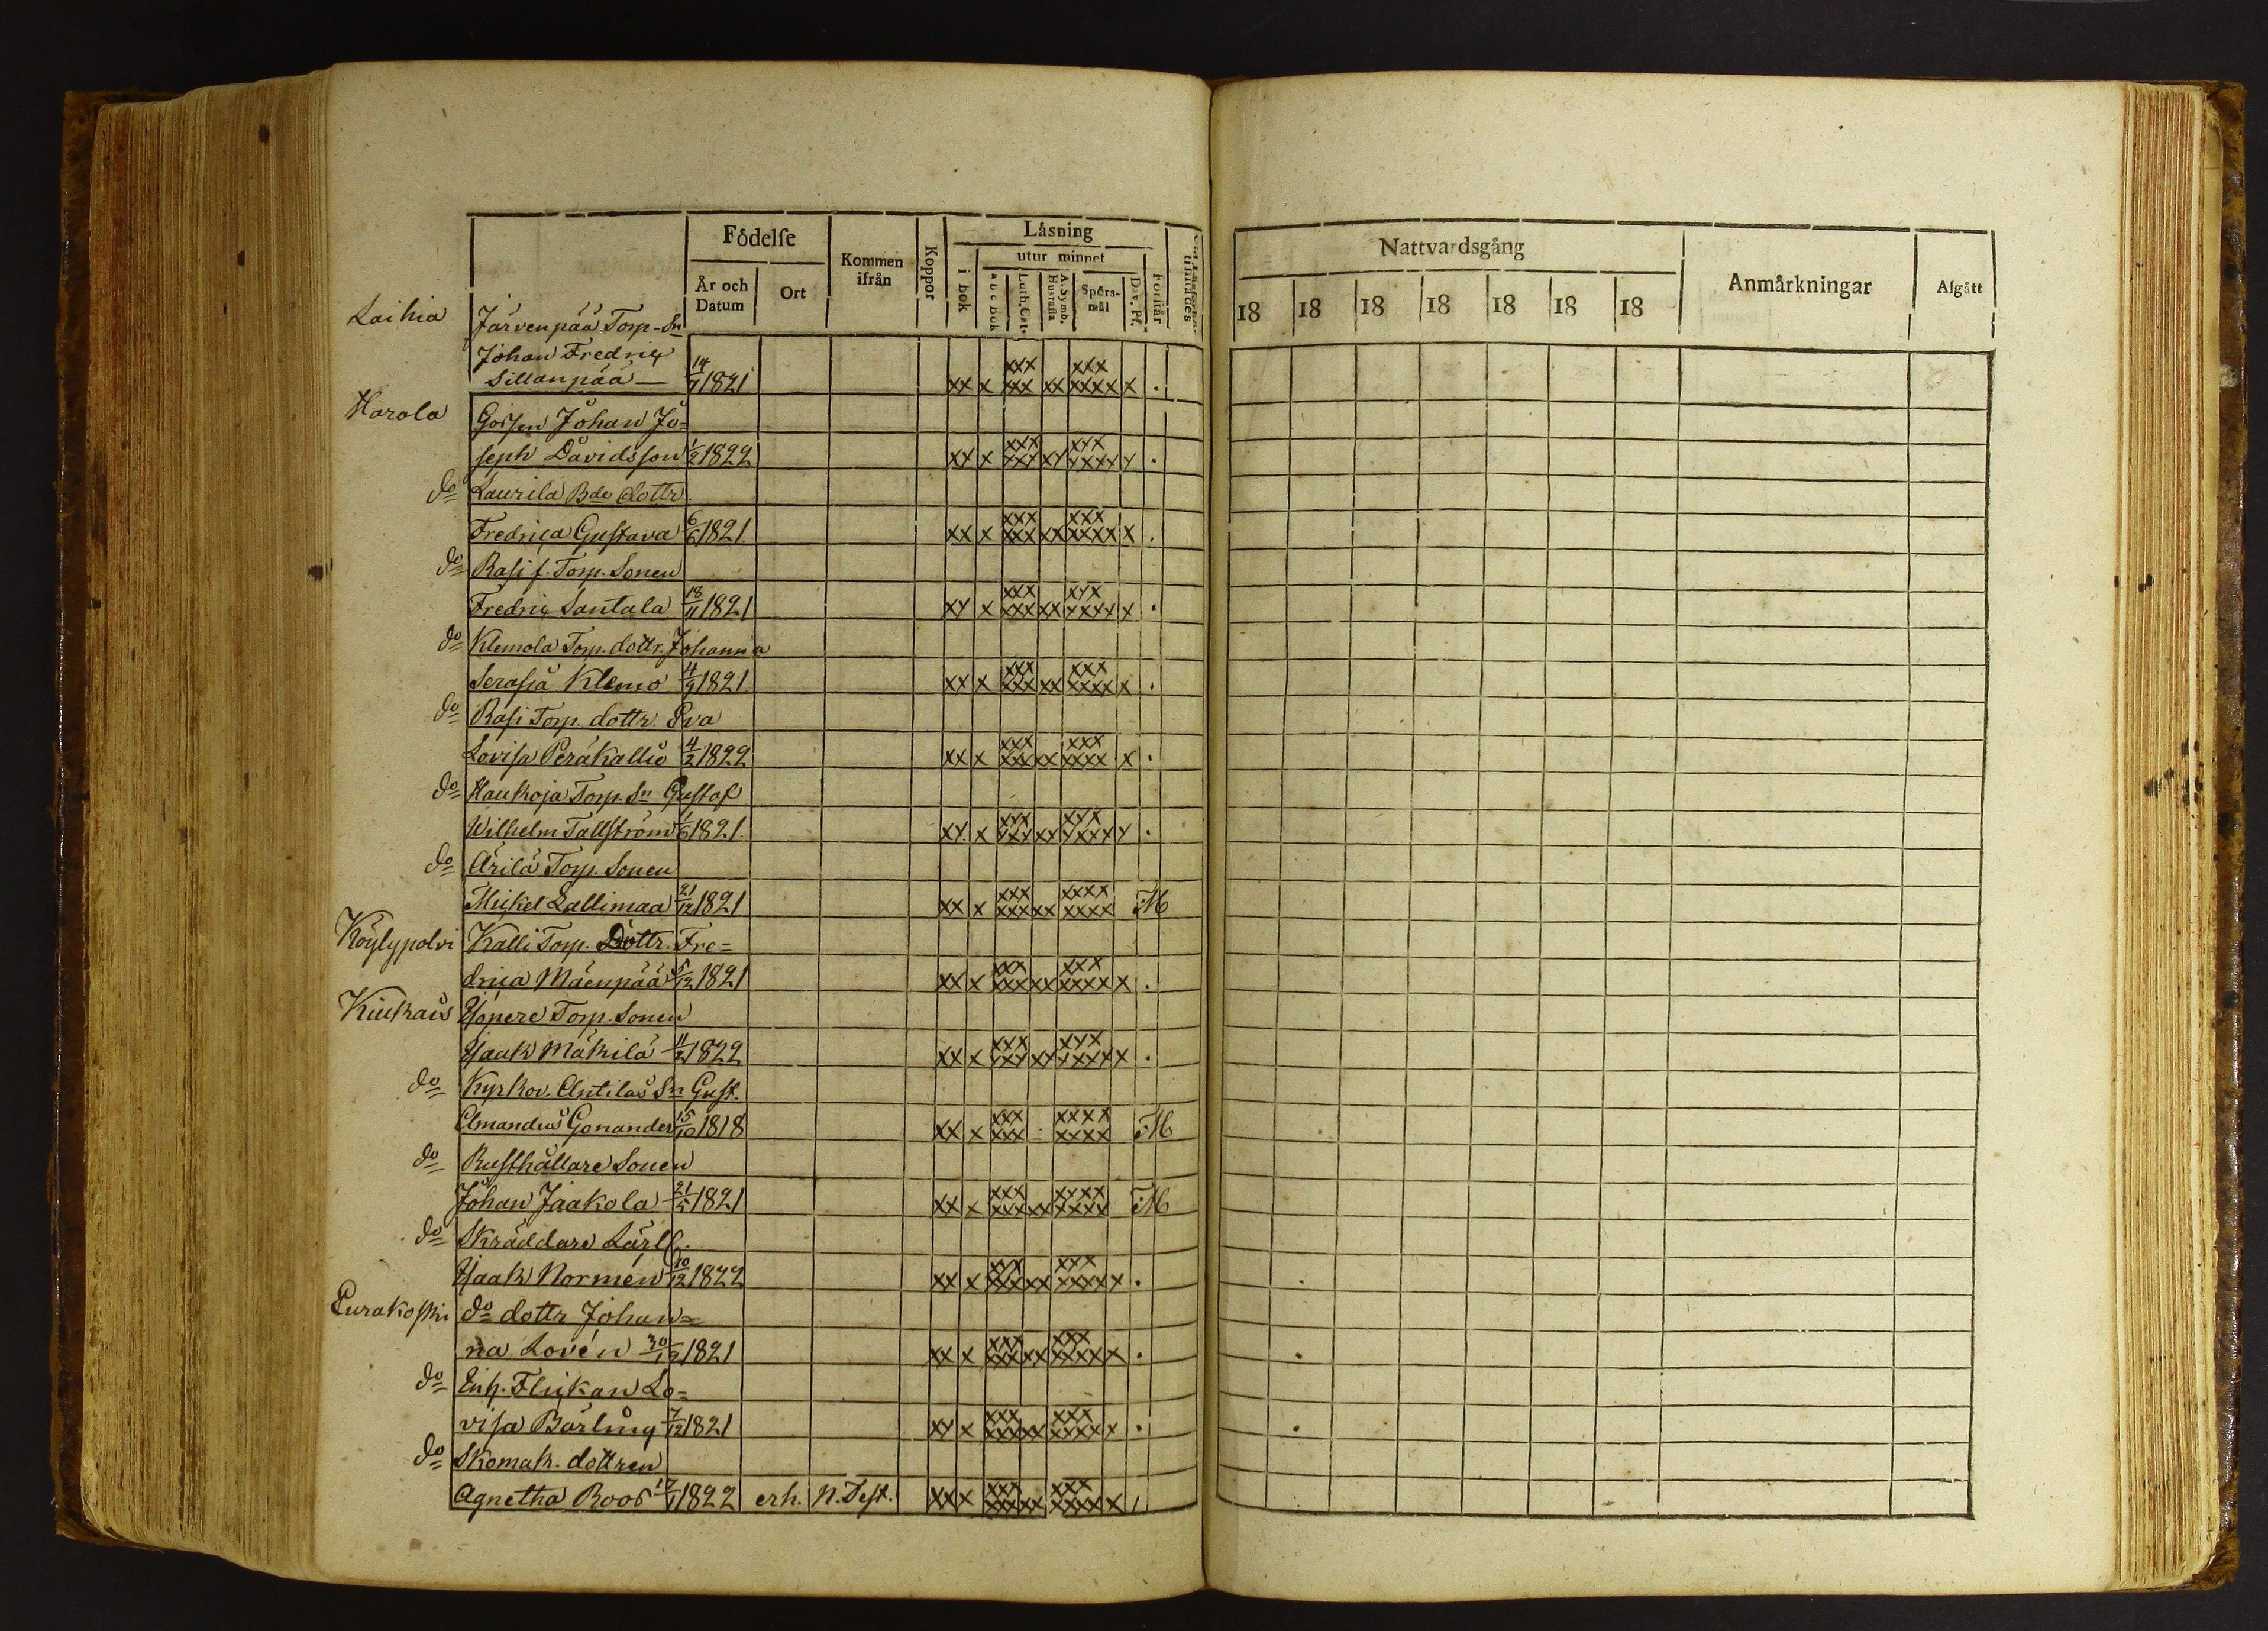 Födelse Kommen ifrån Koppor Läsning
utur minnet
År och Datum Ort i bok a b c bok Luth. Cat. A. Symb. Hustafla Spörs-mål Dav. Ps. Förstår
Nattvardsgång Anmärkningar Afgått
18 18 18 18 18 18 18
Laihia Järvenpää Torp. Sn
Johan Fredric
Sillanpää 1821 xx x xxx xxx xx xxx xxxx x .
Harola Gossen Johan Jo=
seph Davidsson 1/2 1822 xx x xxx xxx xx xxx xxxx x .
do Laurila Bde dottr
Fredrica Gustava 6/6 1821 xx x xxx xxx xx xxx xxxx x .
do Rasi f. Torp. Sonen
Fredric Santala 18/11 1821 xx x xxx xxx xx xxx xxxx x .
do Klemola Torp. dottr. Johanna
Serafia Klemo 4/9 1821 xx x xxx xxx xx xxx xxxx x .
do Rasi Torp. dottr. Eva
Lovisa Peräkallio 4/2 1822 xx x xxx xxx xx xxx xxxx x .
do Haukoja Torp. Sn Gustaf
Wilhelm Tallström 1/6 1821 xx x xxx xxx xx xxx xxxx x .
do Ärilä Torp. Sonen
Mickel Lallimaa 21/12 1821 xx x xxx xxx xx xxxx xxxx M
Köylypolvi Kalli Torp. Dottr. Fre=
drica Mäenpää 5/12 1821 xx x xxx xxx xx xxx xxxx x .
Kiukais Hopere Torp. Sonen
Isaak Mäkilä 11/2 1822 xx x xxx xxx xx xxx xxxx x .
do Kyrkov. Antilas Sn Gust.
Amandus Gonander 15/10 1818 xx x xxx xxx xxxx xxxx M
do Rusthållare Sonen
Johan Jaakola 21/5 1821 xx x xxx xxx xx xxxx xxxx M
do Skräddare Lärl.
Isaak Normén 10/12 1822 xx x xxx xxx xx xxx xxxx x .
Eurakoski do dottr Johan=
na Lovén 30/12 1821 xx x xxx xxx xx xxx xxxx x .
do Enk. Flickan Lo=
visa Bärling 7/12 1821 xx x xxx xxx xx xxx xxxx x .
do Skomak. dottren
Agnetha Roos 17/1 1822 erh. N. Test. xx x xxx xxx xx xxx xxxx x